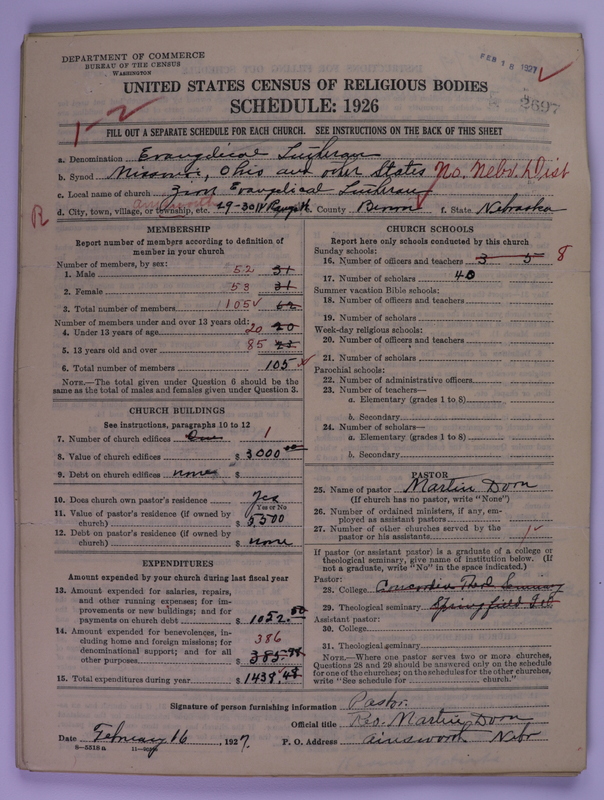 DEPARTMENT OF COMMERCE
BUREAU OF THE CENSUS
WASHINGTON
FEB 18 1927
UNITED STATES CENSUS OF RELIGIOUS BODIES
SCHEDULE: 1926
1-2
FILL OUT A SEPARATE SCHEDULE FOR EACH CHURCH. SEE INSTRUCTIONS ON THE BACK OF THIS SHEET
a. Denomination Evangelical Lutheran
b. Synod Missouri, Ohio and other States No. Nebr. Dist
c. Local name of church Zion Evangelical Lutheran
Ainsworth
R d. City, town, village, or township, etc. 29-30 County Brown f. State Nebraska
MEMBERSHIP
Report number of members according to definition of member in your church
Number of members, by sex:
1. Male 52 31
2. Female 53 31
3. Total number of members 105 62
Number of members under and over 13 years old:
4. Under 13 years of age 20 20
5. 13 years old and over 85
6. Total number of members 105
NOTE.—The total given under Question 6 should be the
same as the total of males and females given under Question 3.
CHURCH BUILDINGS
See instructions, paragraphs 10 to 12
7. Number of church edifices One 1
8. Value of church edifices $ 3000.00
9. Debt on church edifices none $
10. Does church own pastor's residence Yes
Yes or No
11. Value of pastor's residence (if owned by
church) $ 5500
12. Debt on pastor's residence (if owned by
church) $ none
EXPENDITURES
Amount expended by your church during last fiscal year
13. Amount expended for salaries, repairs,
and other running expenses; for im-
provements or new buildings; and for
payments on church debt $ 1052.50
14. Amount expended for benevolences, in-
cluding home and foreign missions; for
denominational support; and for all
other purposes 386 $ 385.98
15. Total expenditures during year $ 1438.48
CHURCH SCHOOLS
Report here only schools conducted by this church
Sunday schools:
16. Number of officers and teachers 3 5 8
17. Number of scholars 40
Summer vacation Bible schools:
18. Number of officers and teachers
19. Number of scholars
Week-day religious schools:
20. Number of officers and teachers
21. Number of scholars
Parochial schools:
22. Number of administrative officers
23. Number of teachers—
a. Elementary (grades 1 to 8)
b. Secondary
24. Number of scholars—
a. Elementary (grades 1 to 8)
b. Secondary
PASTOR
25. Name of pastor Martin Dorn
(If church has no pastor, write "None")
26. Number of ordained ministers, if any, em-
ployed as assistant pastors
27. Number of other churches served by the
pastor or his assistants 1
If pastor (or assistant pastor) is a graduate of a college or
theological seminary, give name of institution below. (If
not a graduate, write "No" in the space indicated.)
Pastor:
28. College Concordia Theol. Seminary
29. Theological seminary Springfield Ill.
Assistant pastor:
30. College
31. Theological seminary
NOTE.—Where one pastor serves two or more churches,
Questions 28 and 29 should be answered only on the schedule
for one of the churches; on the schedules for the other churches,
write "See schedule for church."
Signature of person furnishing information Pastor.
Official title Rev. Martin Dorn
Date February 16, 1927. P. O. Address Ainsworth Nebr
8-5518 a